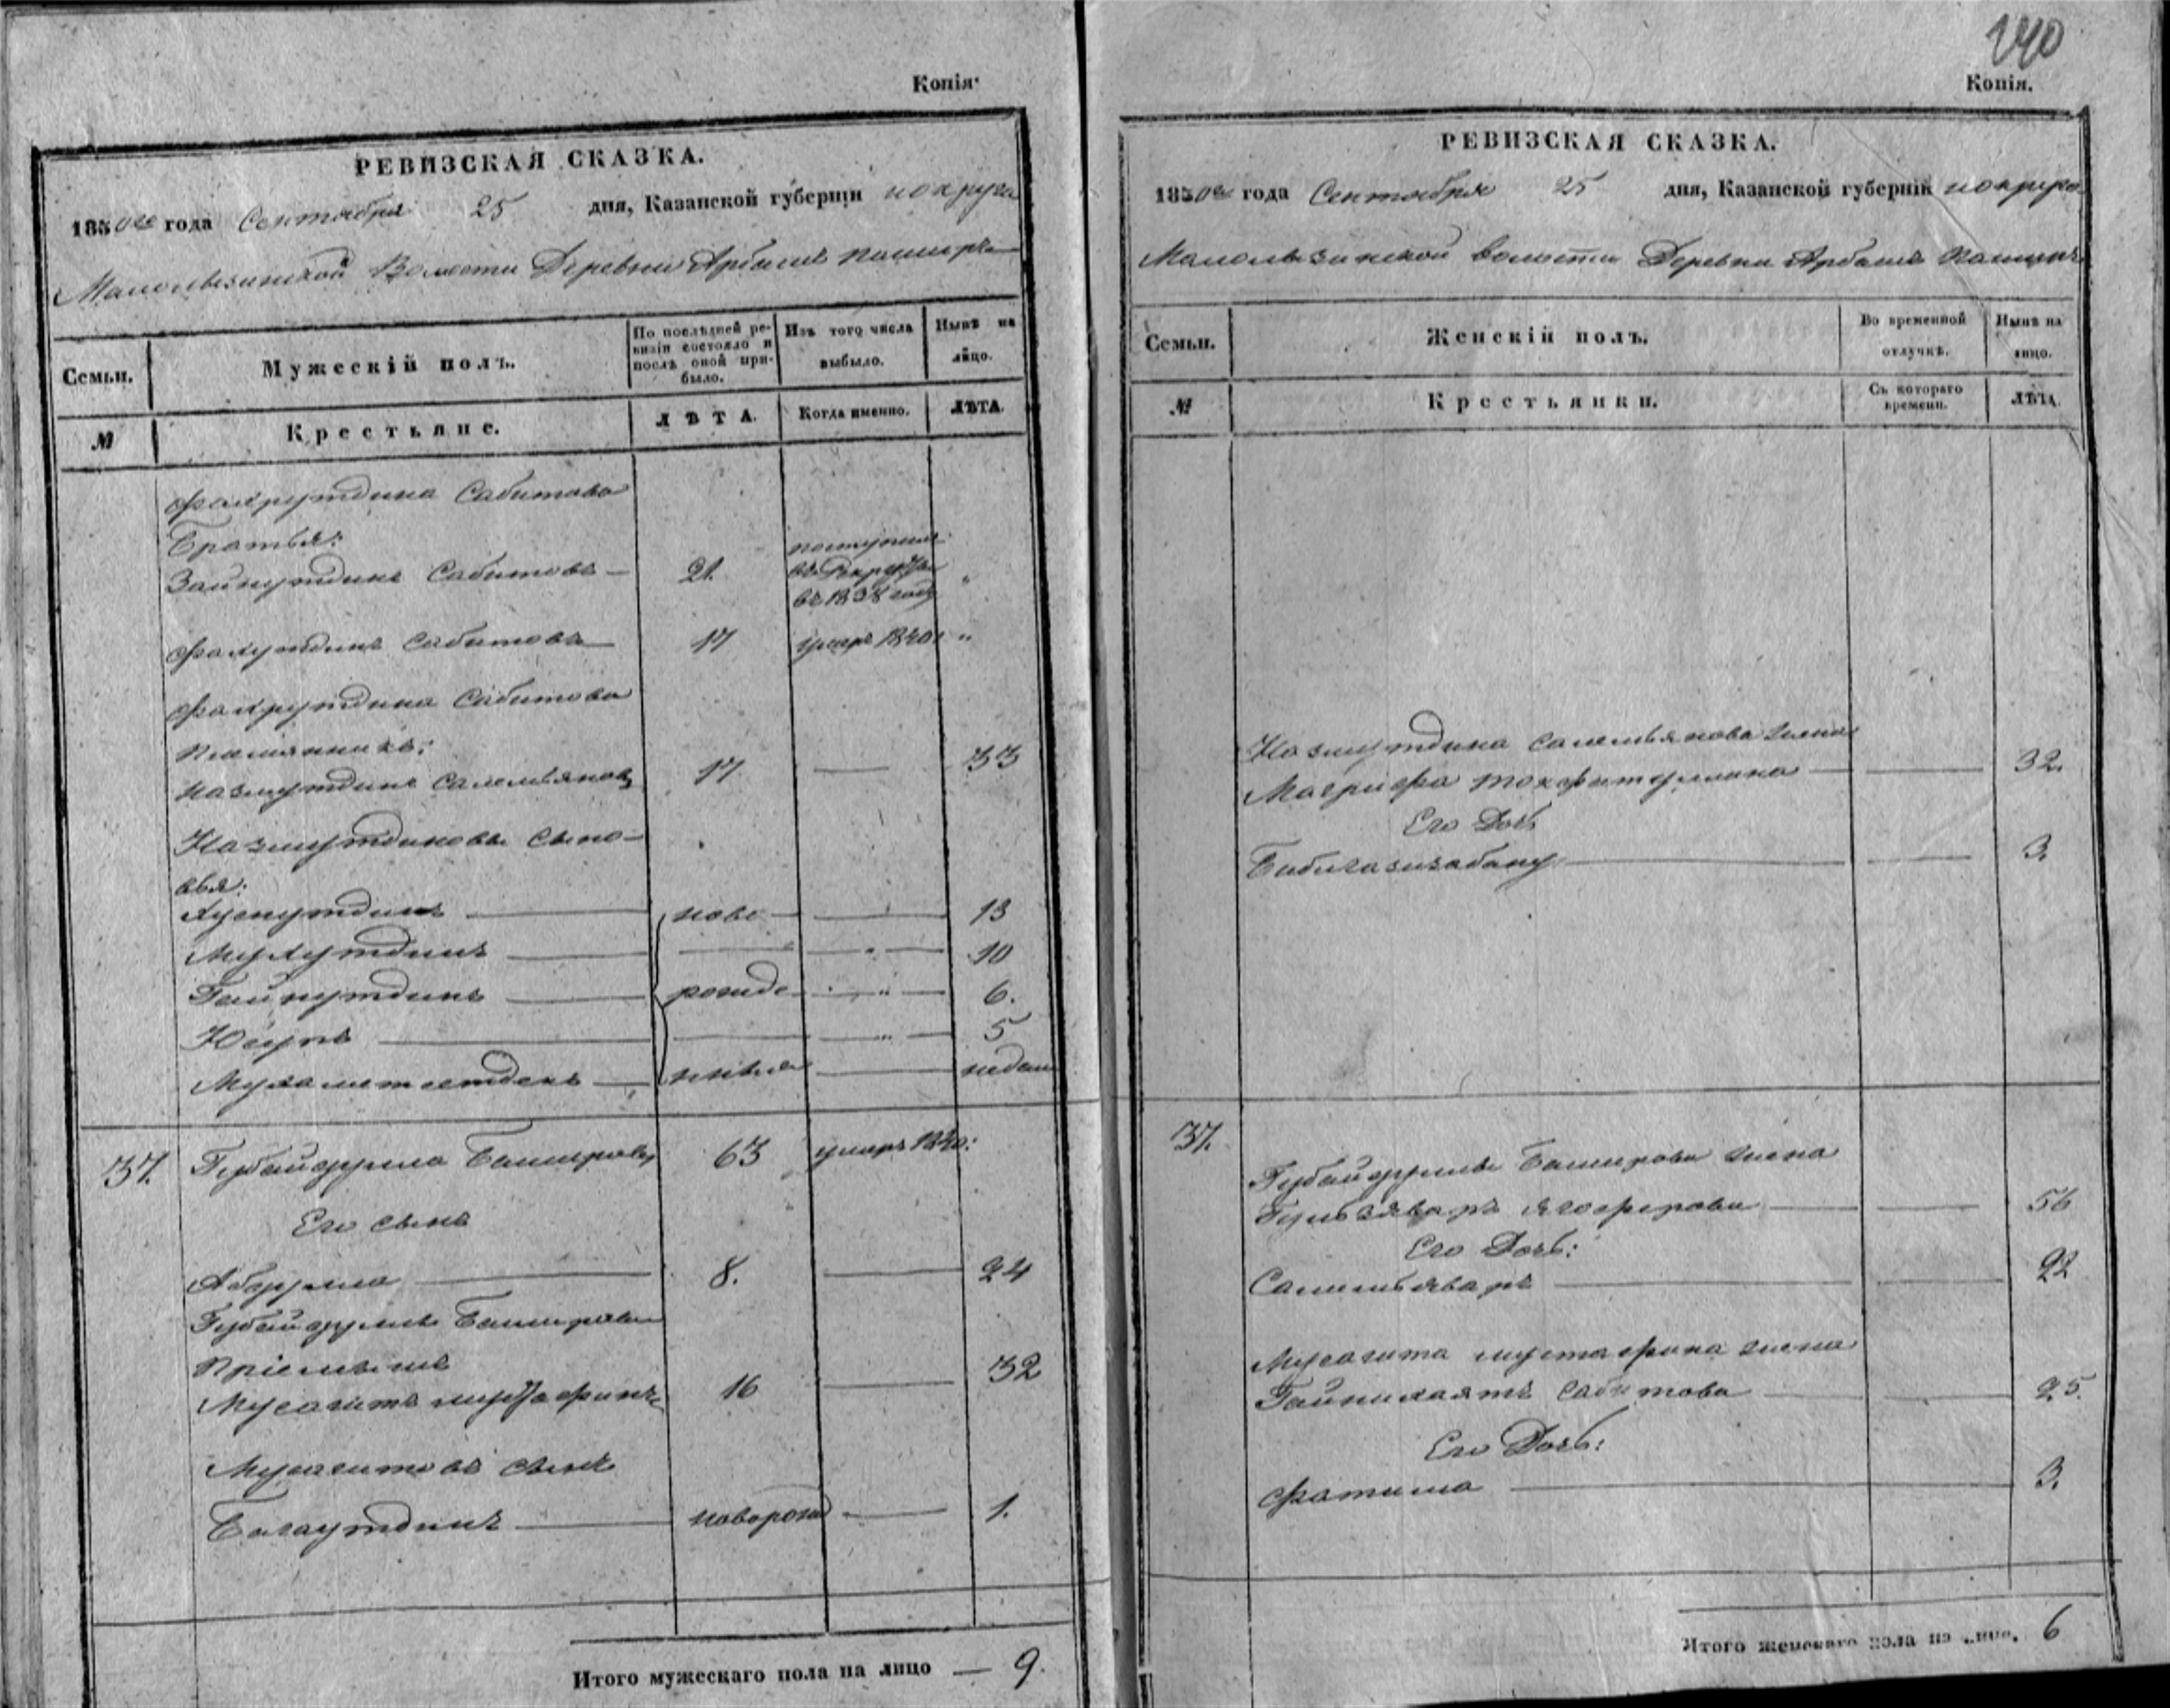 Копія·
РЕВИЗСКАЯ СКАЗКА.
1850го года Сентября 25 дня, Казанской губерніи и округа
Волости Деревни Арбашъ
Семьи.
Мужескій полъ.
По послѣдней ре-
визіи состояло и
послѣ оной при-
было.
Изъ того числа
выбыло.
Нынѣ на
лицо.
№
Крестьяне.
ЛѢТА.
Когда именно.
ЛѢТА.
Фахрутдина Сабитова
Братья:
Зайнутдинъ Сабитовъ — 21. поступилъ
въ Рекруты
въ 1838 году "
Фахутдинъ Сабитовъ — 17 умеръ 1840 "
Фахрутдина Сабитова
племянникъ:
Назмутдинъ 17 — 33
Назмутдиновы сыно-
вья:
Хуснутдинъ — ново — 13
Мухутдинъ — " — 10
Гайнутдинъ — рожде " — 6.
Юнусъ — " — 5
нные —
37. Губайдулла Башировъ 63 умеръ 1840:
Его сынъ
Абдулла — 8. — 24
Губайдуллы Баширова
пріемышъ
Мусагитъ Мустафинъ 16 — 32
Мусагитовъ сынъ
Багаутдинъ — новорож — 1.
Итого мужескаго пола на лицо — 9.
140
Копія.
РЕВИЗСКАЯ СКАЗКА.
1850го года Сентября 25 дня, Казанской губерніи и округа
волости Деревни Арбашъ
Семьи.
Женскій полъ.
Во временной
отлучкѣ.
Нынѣ на
лицо.
№
Крестьянки.
Съ котораго
времени.
ЛѢТА.
Назмутдина жена
Магрифа — 32.
Его Дочь
— 3.
37.
Губайдуллы Баширова жена
— 56
Его Дочь:
— 22
Мусагита Мустафина жена
Сабитова — 25.
Его Дочь:
Фатима — 3.
Итого женскаго пола на лицо. 6